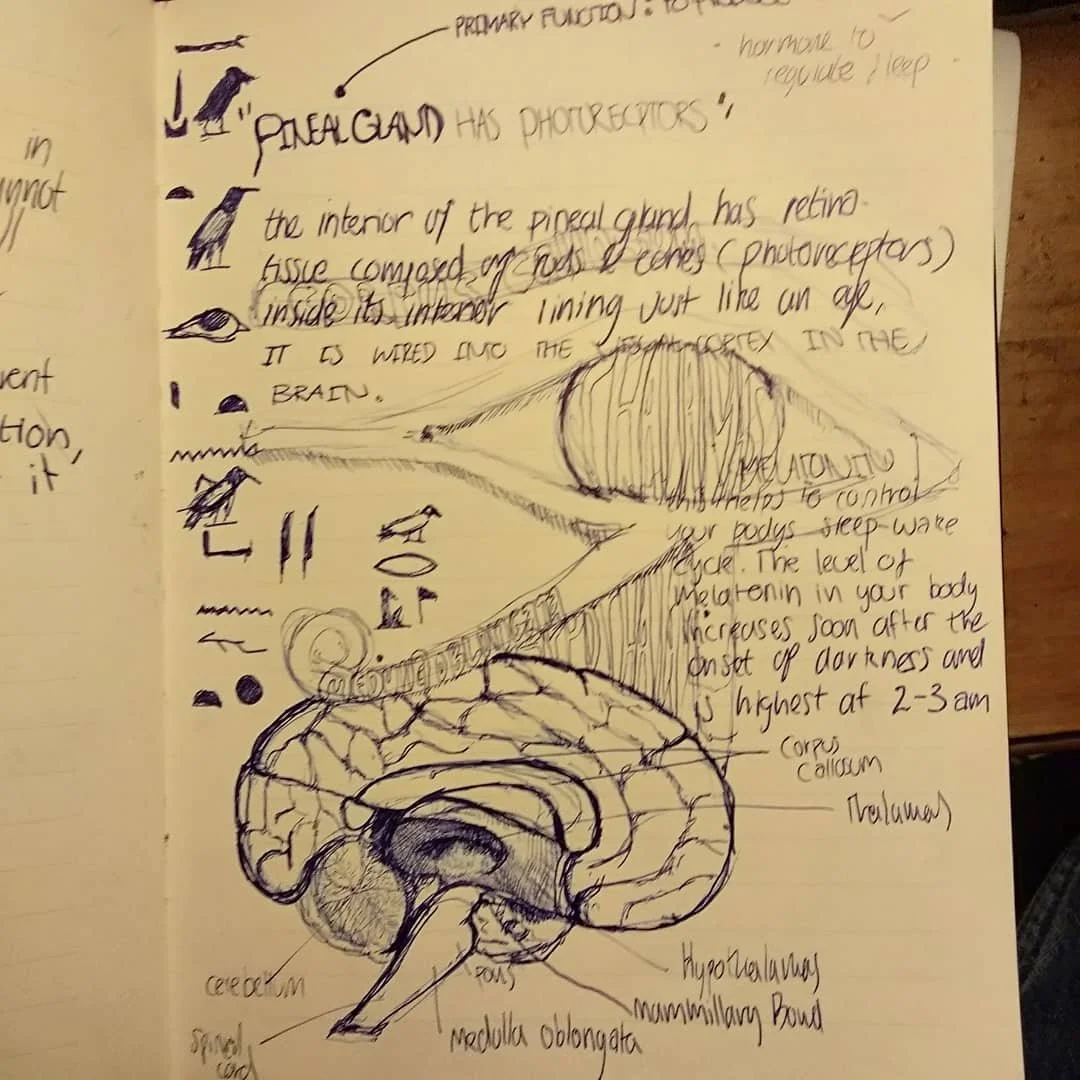 in
vent
tion,
it
PRIMARY FUNCTION: TO
- hormone to
regulate sleep -
"PINEAL GLAND HAS PHOTORECPTORS",
the interior of the pineal gland has retina
tissue composed of rods & cones (photoreceptors)
inside its interior lining just like an eye,
IT IS WIRED INTO THE VISUAL CORTEX IN THE
BRAIN.
THALAMUS
MELATONIN
this helps to control
your bodys sleep-wake
cycle. The level of
melatonin in your body
increases soon after the
onset of darkness and
is highest at 2-3am
Corpus
Callosum
Thalamus
cerebellum
Pons
Hypothalamus
mammillary Boud
Medulla oblongata
spinal
cord